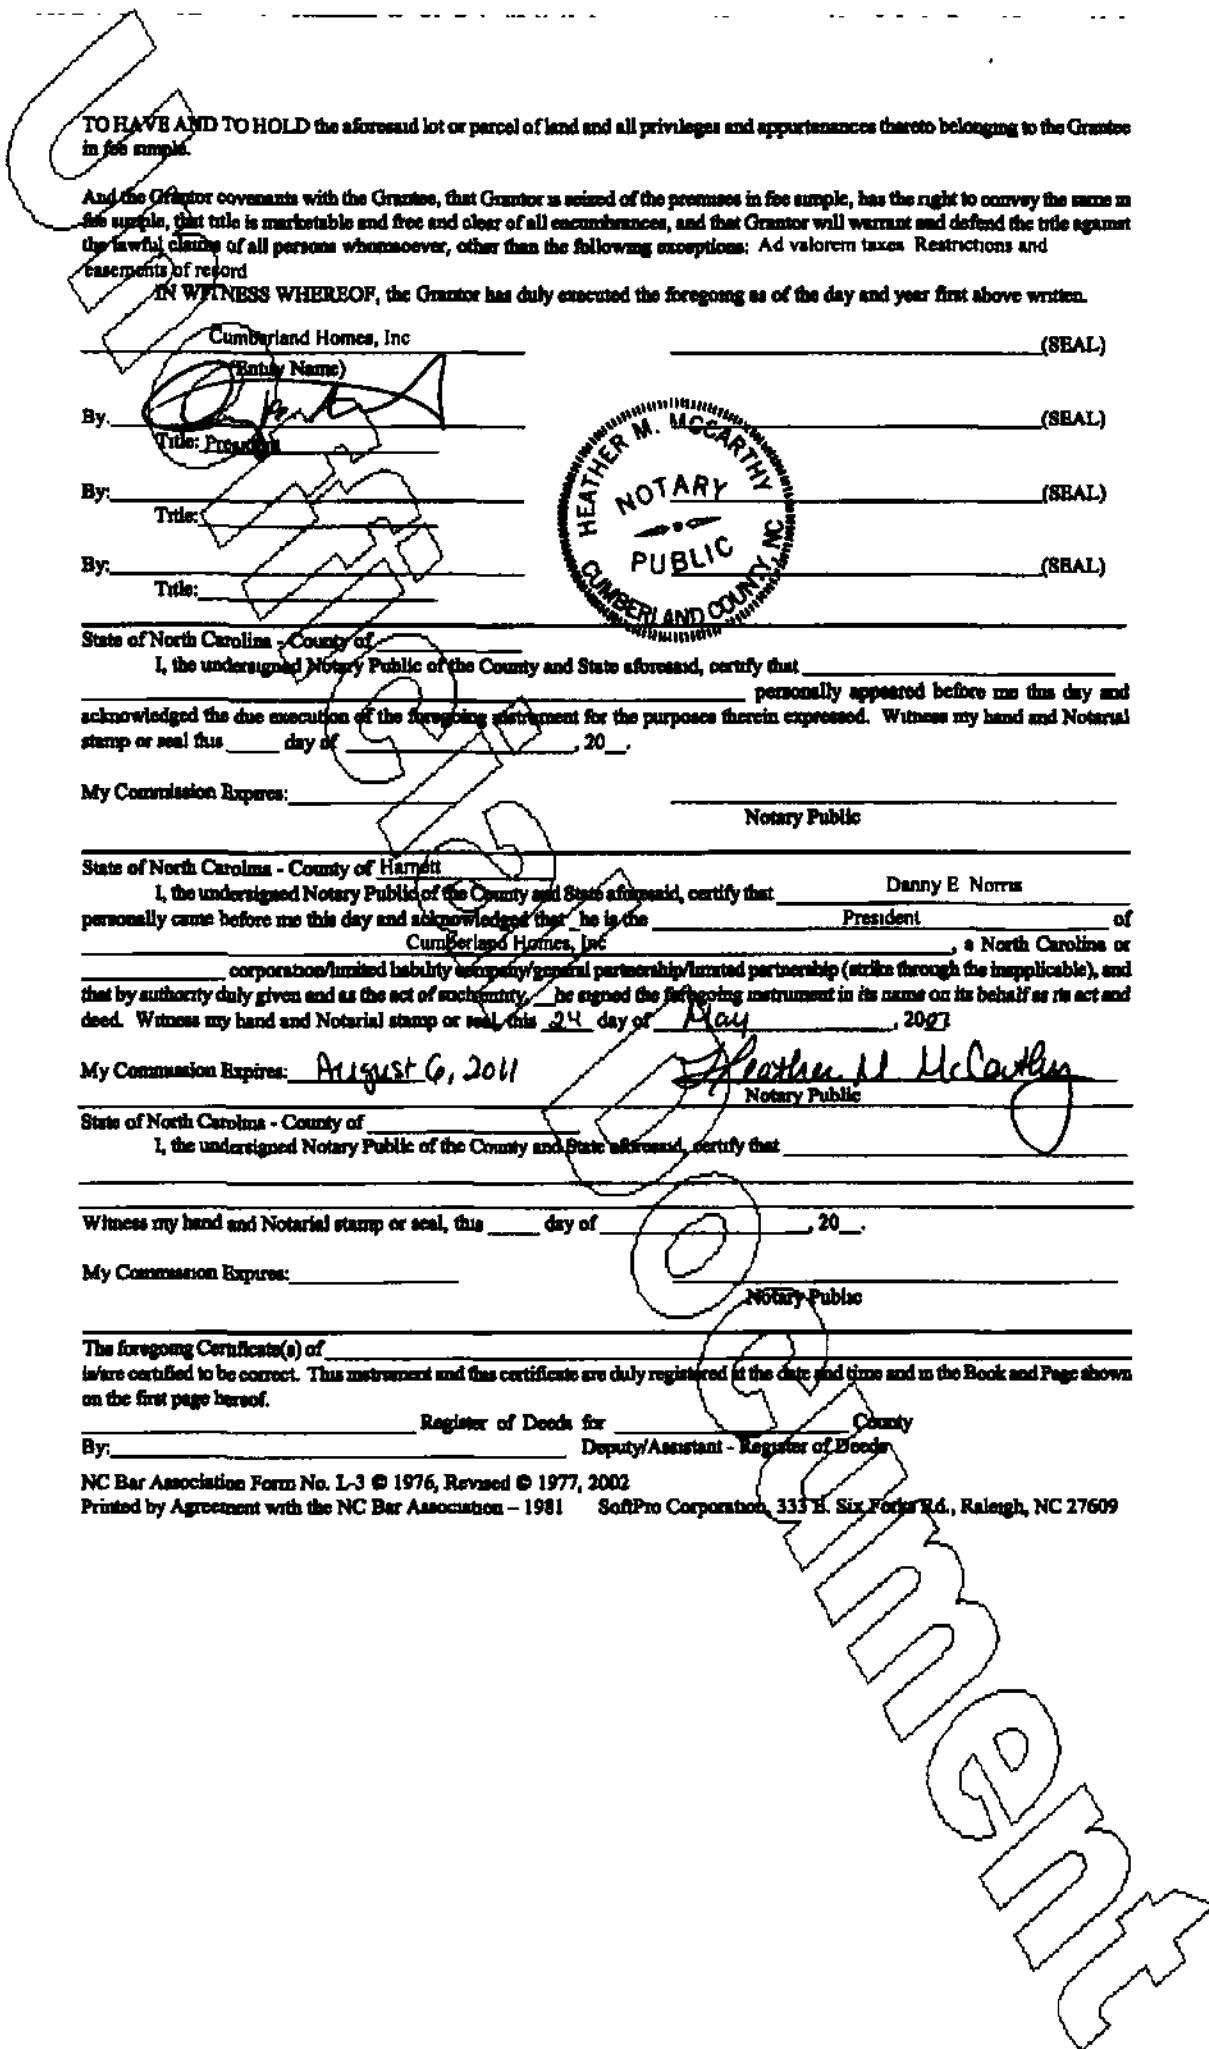 TO HAVE AND TO HOLD the aforesaid lot or parcel of land and all privileges and appurtenances thereto belonging to the Grantee
in fee simple.
And the Grantor covenants with the Grantee, that Grantor is seized of the premises in fee simple, has the right to convey the same in
fee simple, that title is marketable and free and clear of all encumbrances, and that Grantor will warrant and defend the title against
the lawful claims of all persons whomsoever, other than the following exceptions: Ad valorem taxes Restrictions and
easements of record
IN WITNESS WHEREOF, the Grantor has duly executed the foregoing as of the day and year first above written.
Cumberland Homes, Inc (SEAL)
(Entity Name)
By. (SEAL)
Title: President
By: (SEAL)
Title:
By: (SEAL)
Title:
HEATHER M. MCCARTHY
NOTARY
PUBLIC
CUMBERLAND COUNTY, NC
State of North Carolina - County of
I, the undersigned Notary Public of the County and State aforesaid, certify that
personally appeared before me this day and
acknowledged the due execution of the foregoing instrument for the purposes therein expressed. Witness my hand and Notarial
stamp or seal this ____ day of ____, 20__.
My Commission Expires:
Notary Public
State of North Carolina - County of Harnett
I, the undersigned Notary Public of the County and State aforesaid, certify that Danny E Norris
personally came before me this day and acknowledged that _he is the President of
Cumberland Homes, Inc, a North Carolina or
corporation/limited liability company/general partnership/limited partnership (strike through the inapplicable), and
that by authority duly given and as the act of such entity, _he signed the foregoing instrument in its name on its behalf as its act and
deed. Witness my hand and Notarial stamp or seal, this 24 day of May, 2007
My Commission Expires: August 6, 2011 Heather M McCarthy
Notary Public
State of North Carolina - County of
I, the undersigned Notary Public of the County and State aforesaid, certify that
Witness my hand and Notarial stamp or seal, this ____ day of ____, 20__.
My Commission Expires:
Notary Public
The foregoing Certificate(s) of
is/are certified to be correct. This instrument and this certificate are duly registered at the date and time and in the Book and Page shown
on the first page hereof.
Register of Deeds for ____ County
By: Deputy/Assistant - Register of Deeds
NC Bar Association Form No. L-3 © 1976, Revised © 1977, 2002
Printed by Agreement with the NC Bar Association – 1981 SoftPro Corporation, 333 E. Six Forks Rd., Raleigh, NC 27609
Unofficial Document